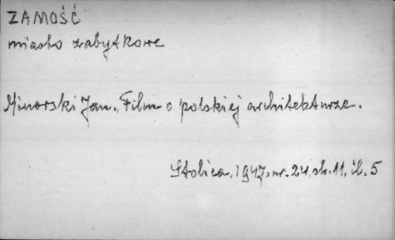 ZAMOŚĆ
miasto zabytkowe
Minorski Jan. Film o polskiej architekturze.
Stolica, 1947, nr. 24, st. 11, il. 5